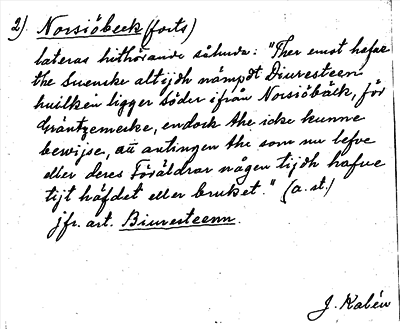 2) Norsiöbeck (forts)
lateras hithörande sålunda: "Ther emot hafue
the Suencke altijdh nämpdt Diuresteen
huilken ligger söder ifrån Norsiöbäck, för
Gräntzemerke, endock the icke kunne
bewijse, att antingen the som nu lefve
eller deres Föräldrar någen tijdh hafue
tijt häfdet eller bruket." (a. st.)
jfr. art. Biuresteenn.
J. Kalén